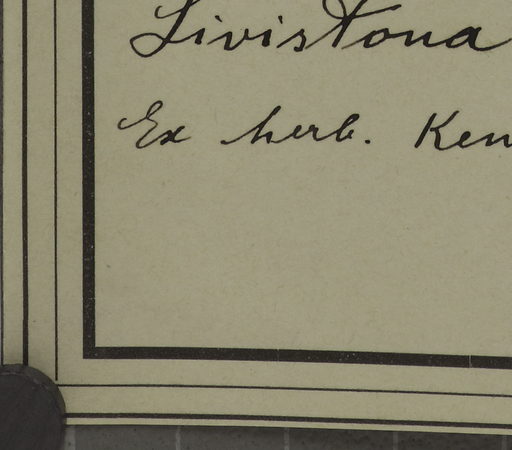 Livistona
Ex herb. Ken